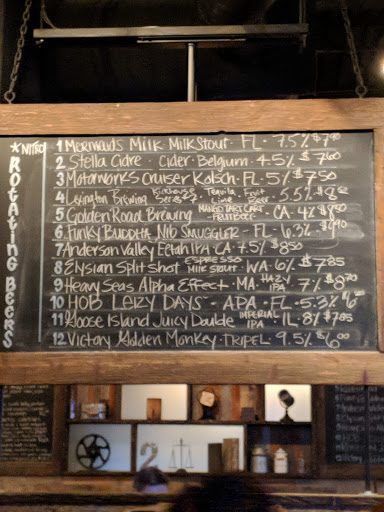 *NITRO
ROTATING BEERS
1 MERMAIDS MILK MILK STOUT · FL · 7.5%
2 STELLA CIDRE · CIDER · BELGIUM · 4.5% $7.60
3 MOTORWORKS CRUISER KOLSCH · FL · 5% $7.50
4 LEXINGTON BREWING KICKHOUSE SERIES TEQUILA FRUIT LIME BEER 5.5%
5 GOLDEN ROAD BREWING MANGO CART CART · FRUIT BEER · CA · 4%
6 FUNKY BUDDHA NIB SMUGGLER · FL · 6.3%
7 ANDERSON VALLEY IPA · CA · 7.5% $8.50
8 ELYSIAN SPLIT SHOT ESPRESSO MILK STOUT · WA · 6% $7.85
9 HEAVY SEAS ALPHA EFFECT · MA · HAZY IPA · 7%
10 HOB LAZY DAYS · APA · FL · 5.3%
11 GOOSE ISLAND JUICY DOUBLE IMPERIAL IPA · IL · 8%
12 VICTORY GOLDEN MONKEY · TRIPEL · 9.5% $6.00
2